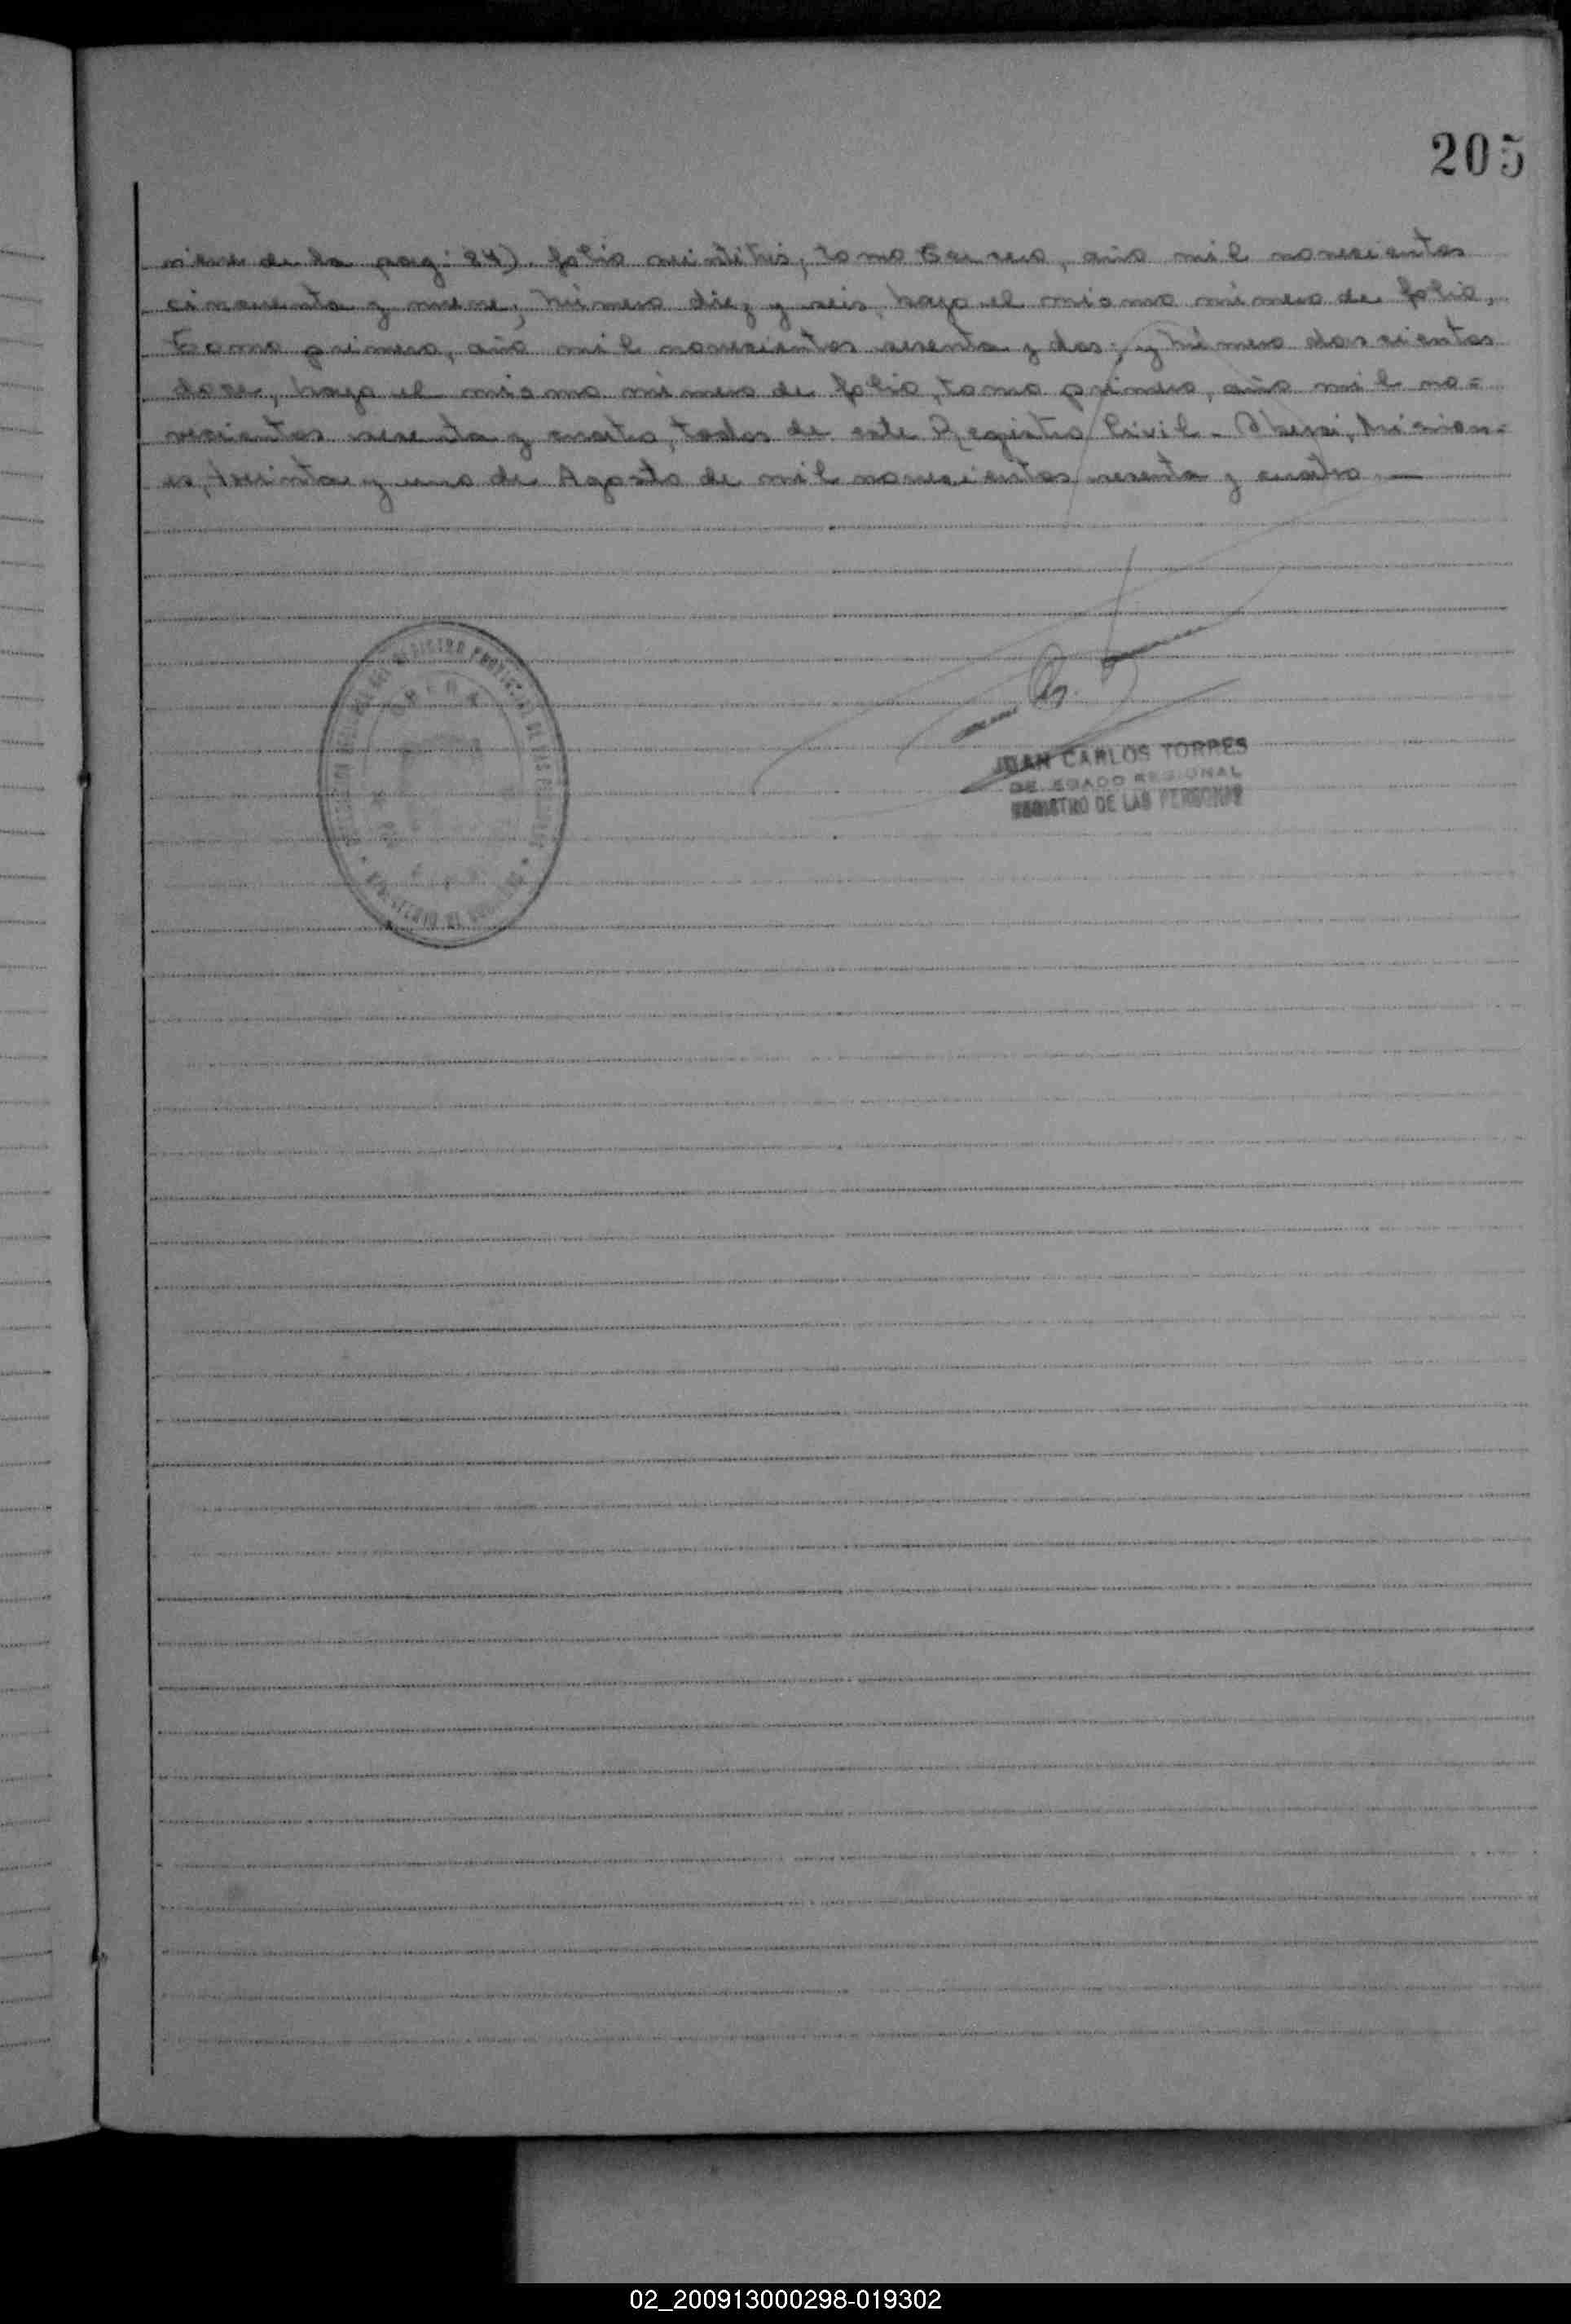 205
viene de la pag: 84). folio veintitrés, tomo tercero, año mil novecientos
cincuenta y nueve; Número diez y seis, bajo el mismo número de folio,
Tomo primero, año mil novecientos sesenta y dos; y Número doscientos
doce, bajo el mismo número de folio, tomo primero, año mil no=
vecientos sesenta y cuatro, todos de este Registro Civil - Oberá, Mision=
es, treinta y uno de Agosto de mil novecientos sesenta y cuatro —
REGISTRO PROVINCIAL DE LAS PERSONAS
OBERA
JUAN CARLOS TORRES
DELEGADO REGIONAL
REGISTRO DE LAS PERSONAS
02_200913000298-019302